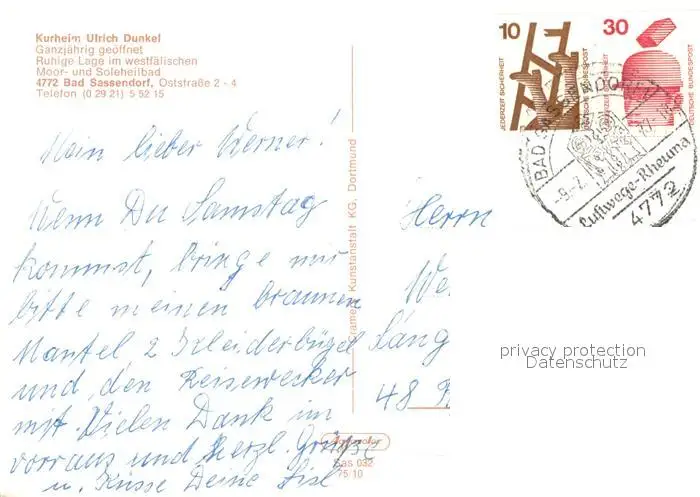 Kurheim Ulrich Dunkel
Ganzjährig geöffnet
Ruhige Lage im westfälischen
Moor- und Soleheilbad
4772 Bad Sassendorf, Oststraße 2 - 4
Telefon (0 29 21) 5 52 15
Mein lieber Werner!
Wenn Du Samstag
kommst, bringe mir
bitte meinen braunen
Mantel 2 Kleiderbügel
und den Reisewecker
mit. Vielen Dank im
vorraus und Herzl. Grüße
u. Küsse Deine
Sas 032
75/10
Kunstanstalt KG, Dortmund
10
JEDERZEIT SICHERHEIT
30
DEUTSCHE BUNDESPOST
BAD SASSENDORF
Luftwege-Rheuma
4772
Herrn
We
Läng
48
privacy protection
Datenschutz